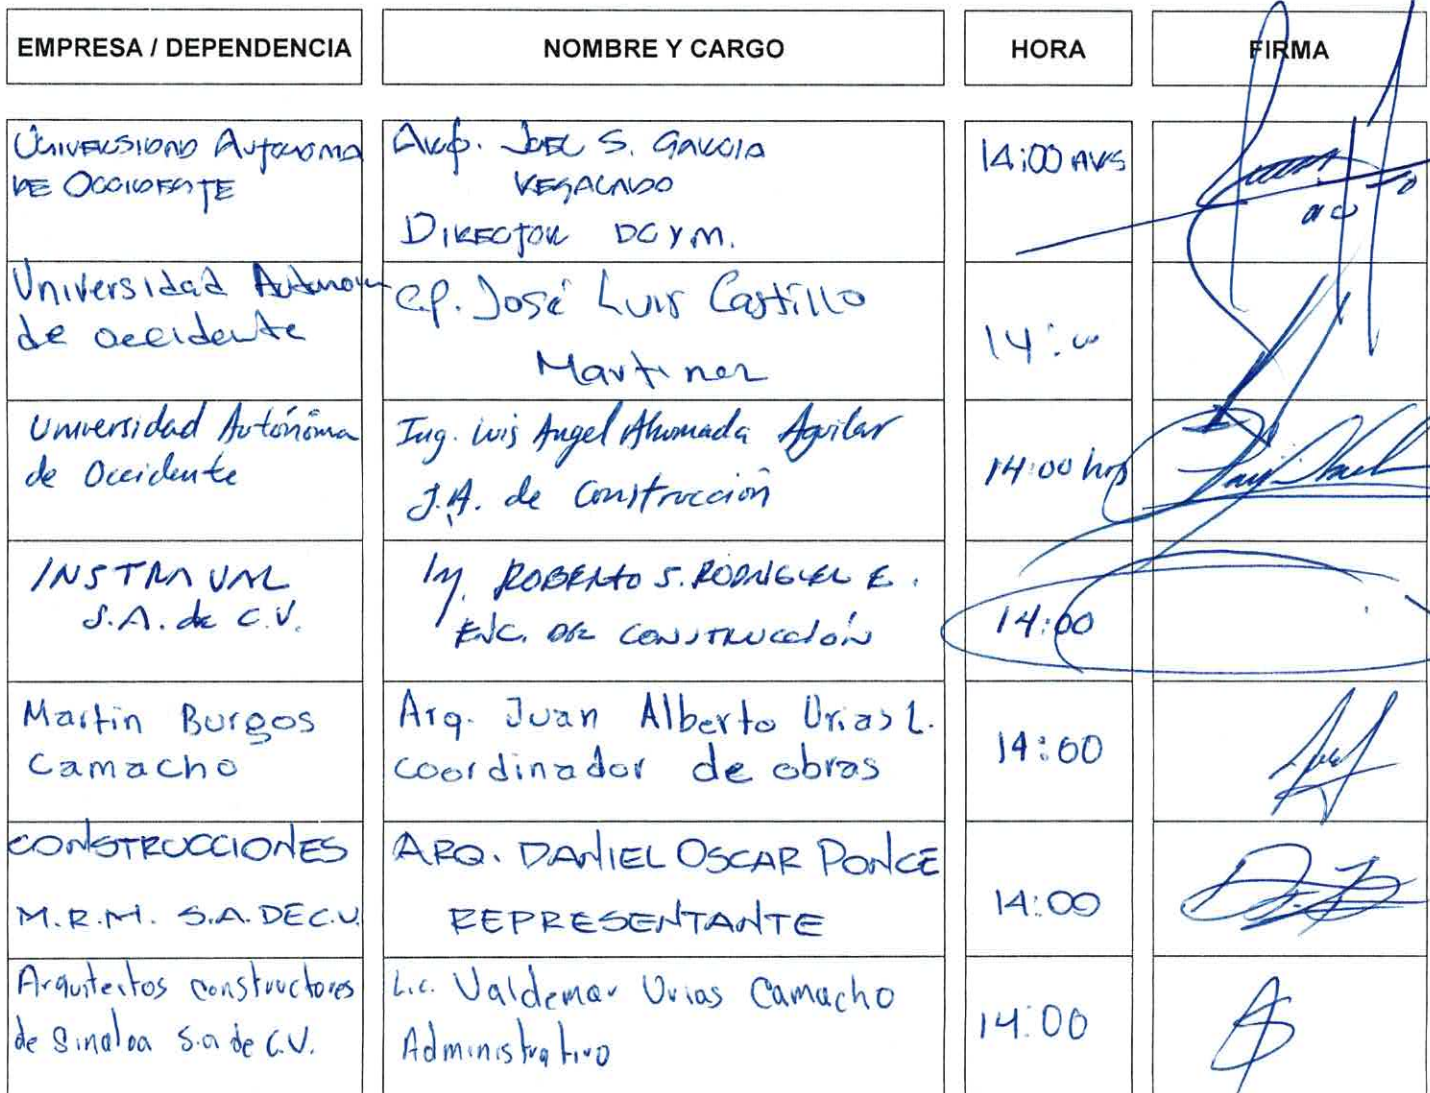 EMPRESA / DEPENDENCIA
NOMBRE Y CARGO
HORA
FIRMA
Universidad Autonoma
de Occidente
Arq. Joel S. Garcia
Director DCYM.
14:00 Hrs
Universidad Autonom
de occidente
C.P. José Luis Castillo
Martinez
14:00
Universidad Autónoma
de Occidente
Ing. Luis Angel Ahumada Aguilar
J.A. de Construcción
14:00 hrs
INSTRAVAL
S.A. de C.V.
Ing. ROBERTO S. RODRIGUEZ E.
ENC. DE CONSTRUCCIÓN
14:00
Martin Burgos
Camacho
Arq. Juan Alberto Urias L.
coordinador de obras
14:00
CONSTRUCCIONES
M.R.M. S.A. DE C.V.
ARQ. DANIEL OSCAR PONCE
REPRESENTANTE
14:00
Arquitectos constructores
de Sinaloa S.a de C.V.
Lic. Valdemar Urias Camacho
Administrativo
14:00